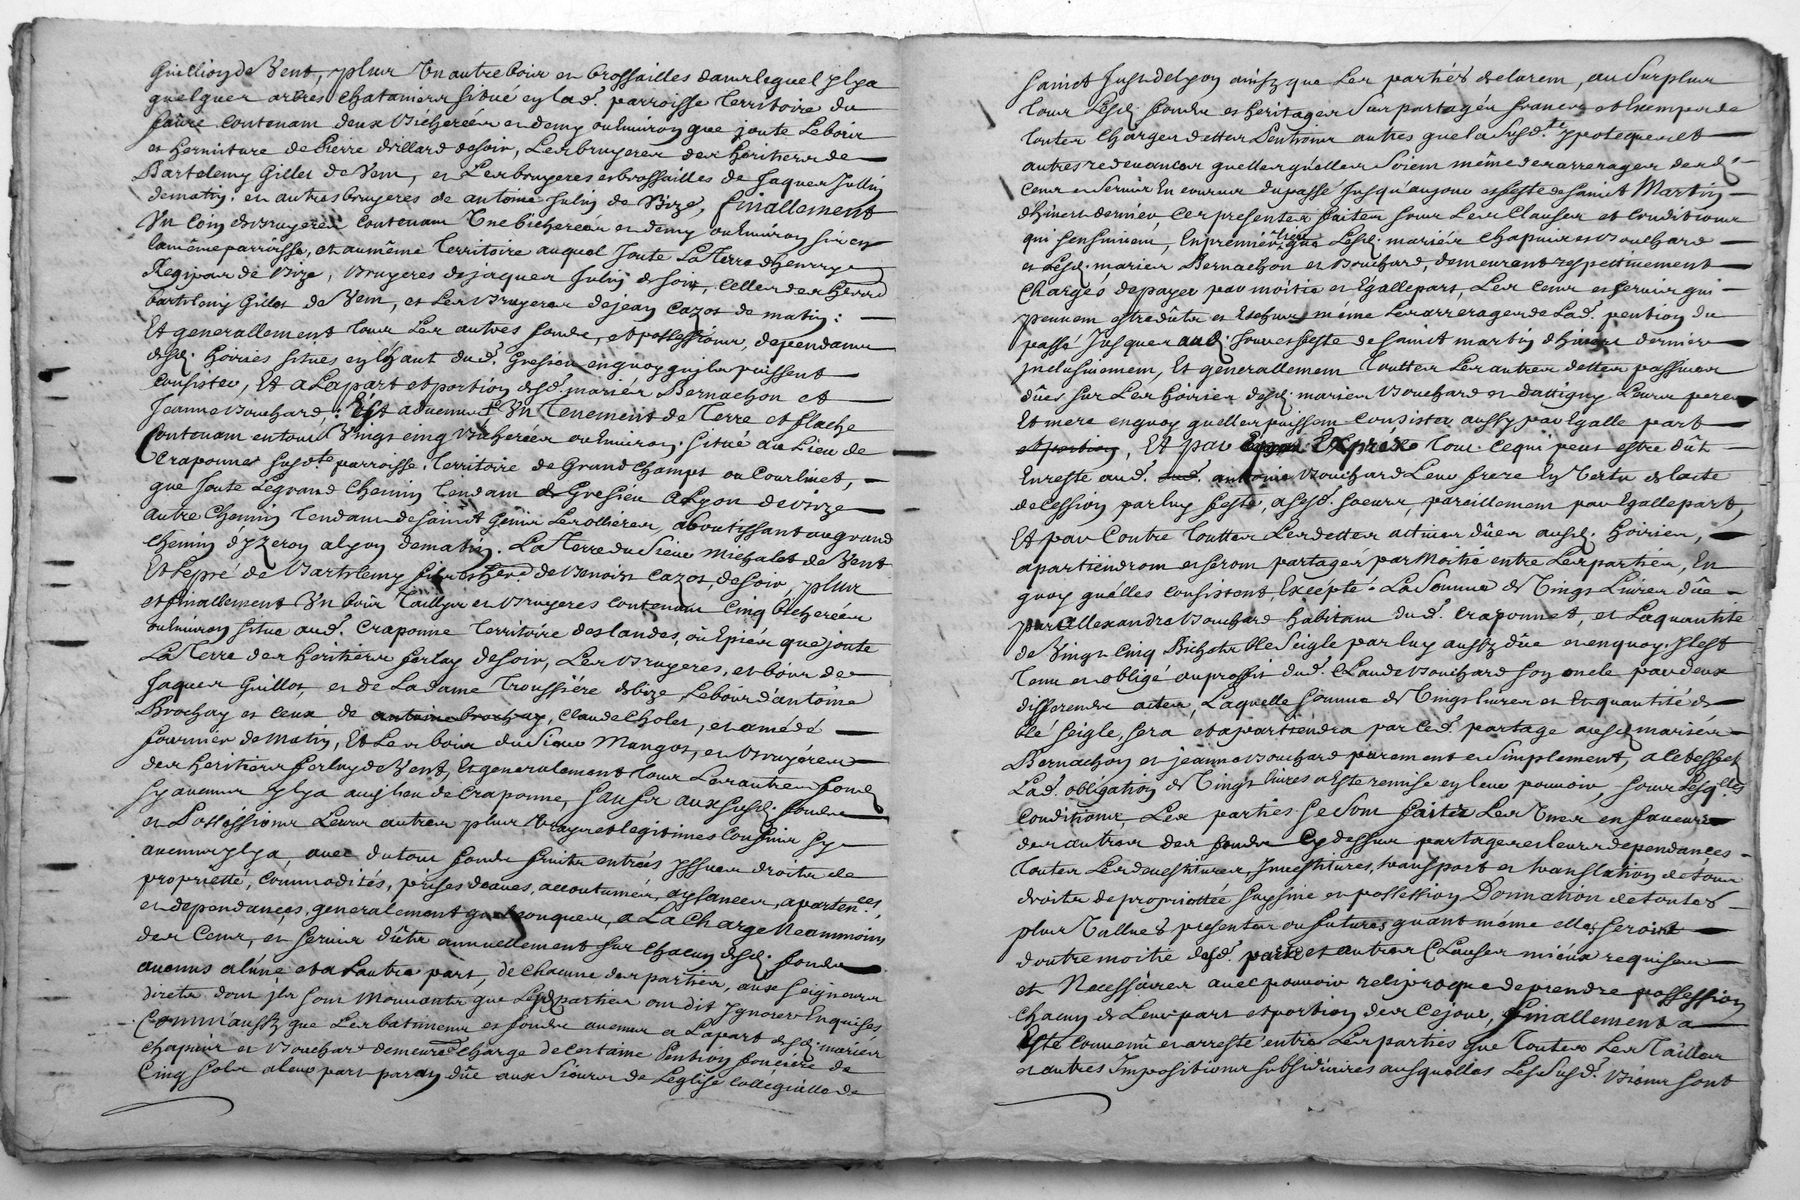 Guillion de Vent, plus Un autre bois en brossailles dans lequel y lya
quelques arbres Chatanier situé en lad. parroisse Territoire du
faure contenant deux Bicherées et demy ou Environ que joute Le bois
et hermiture de Pierre drillard de soir, Les bruyeres des heritiers de
Bartelemy Gillet de Vent, et Les bruyeres et brossailles de Jaques Jullin
de matin. et autres bruyeres de antoine Julin de Bize, finallement
Un Coin de Bruyeres contenant Une bicherée et demy ou Environ sis en
la même parroisse, et au même Territoire auquel Joute La Terre d'henry
de Bize, Bruyeres de jaques Julin de soir, Celles des
bartelemy Gillet de Vent, et Les Bruyeres de jean Cazot de matin :
Et generallement tous Les autres fonds, et possessions dependants
desd. hoiries situés en léz aut dud. Gresieu en quoy qu'ils puissent
Consister, Et a Lapart et portion desd. mariés Bernachon et
Jeanne Bouchard, Est advenus Un Tenement de Terre et flache
Contenant en tout Vingt cinq Bicherées ou Environ, situé au Lieu de
Craponne susd.te parroisse, Territoire de Grand Champs ou Courlivet,
que Joute Le grand Chemin Tendant de Gresieu a Lyon de bize
autre Chemin Tendant de saint Genis Les ollieres, aboutissant au grand
Chemin d'yzeron a lyon de matin. La Terre du Sieur Michalet de Vent
Et Le pré de Bartelemy de Benoist Cazot, de soir, plus
et finallement Un bois Taillys et Bruyeres contenant Cinq bicherées
ou Environ situé aud. Craponne Territoire des landes, ou Epiés que joute
La Terre des heritiers ferlay de soir, Les Bruyeres, et bois de
Jaques Guillot, et de La dame Troussiére de bize Le bois d'antoine
Brochay et Ceux de antoine brochay, Claude Cholet, et amédé
fournier de Matin, Et Les bois du Sieur Mangot, et Bruyéres
des heritiers ferlay de Vent, Et generalement tous Les autres fonds
sy aucuns y lya au lieu de Craponne, sauf aux susd. fonds
et Possessions Leurs autres plus Vrays et legitimes Confins sy
aucuns y lya, avec du tout fonds fruits entrées yssues droits de
proprietté, commodités, prises deaues, accoutumés, aysances, aparten.ces
et dependances generalement quelconques, a La Charge Neanmoins
des Cens, et servis dûts annuellement sur Chacun desd. fonds
avenus a lúne et a L'autre part, de chacune des parties, aux seigneurs
directs dont ils sont Mouvants que Lesd. parties ont dit Ignorer Enquises
Comm'aussy que Les batiments et fonds avenus a Lapart desd. mariés
Chapuis et Bouchard demeure chargé de Certaine Pention fonciére de
Cinq sols a leur part par an dûe aux Sieurs de L'eglise Collegialle de
Sainct Just de Lyon ainsy que Les parties declarent, au Surplus
tous Lesd. fonds et heritages sus partagés francs et Exempts de
toutes Charges dettes Pentions autres que la Susd.te ypoteques et
autres redevances quelles qu'elles soient même des arrerages desd.
Cens et Servis En courus du passé Jusqu'au jour et feste de sainct Martin
d'hivers dernier Ces presentes faites sous Les Clauses et Conditions
qui sensuivent, En premier lieu que Lesd. mariés Chapuis et Bouchard
et Lesd. mariés Bernachon et Bouchard, demeurent respectivement
Chargés de payer par moitié et Egalle part, Les Cens et servis qui
peuvent estre dûts et Eschus même Les arrerages de Lad. pention du
passé Jusques aud. Jour et feste de sainct martin d'hivers dernier
inclusivement, Et generallement Touttes Les autres dettes passives
dûes sur Les hoiries desd. mariés Bouchard et dattigny Leurs pere
Et mere en quoy qu'elles puissent Consister aussy par Egalle part
et portion, Et par Exprés tout ce qui peut estre dût
En reste aud. antoine Bouchard Leur frere En Vertu de lacte
de Cession par luy faite, a sesd. soeurs, pareillement par Egalle part,
Et par Contre Touttes Les dettes actives dûes ausd. hoiries,
apartiendront et seront partagées par Moitié entre Les parties, En
quoy qu'elles Consistent, Excépté La Somme de Vingt Livres dûe
par Allexandre Bouchard habitant dud. Craponnet, et La quantité
de Vingt Cinq Bichets Blé Seigle par luy aussy dûe et en quoy, il est
tenu et obligé au proffit dud. Claude Bouchard son oncle par deux
differents actes, Laquelle somme de Vingt livres et Et quantité de
blé seigle, sera et apartiendra par Led. partage ausd. mariés
Bernachon et jeanne Bouchard purement et Simplement, a let effet
Lad. obligation de Vingt livres a Esté remise en leur pouvoir, sous Lesq.lles
Conditions, Les parties se sont faites Les Unes en faveurs
des autres des fonds Cy dessus partages et leurs dependances
toutes Les devestitures, Investitures, transport et translation de tous
droits de propriettée saysine et possession Donnation de toutes
plus Vallues presentes ou futures quant même elles seroint
d'outre moitié desd. parts et autres Clauses mieux requises
et Necessaires avec pouvoir reciproque de prendre possession
Chacun de Leur part et portion des Ce jour, finallement a
Esté Convenû et arresté entre Les parties que Toutes Les Tailles
et autres Impositions subsidiaires ausquelles Les susd. Biens sont